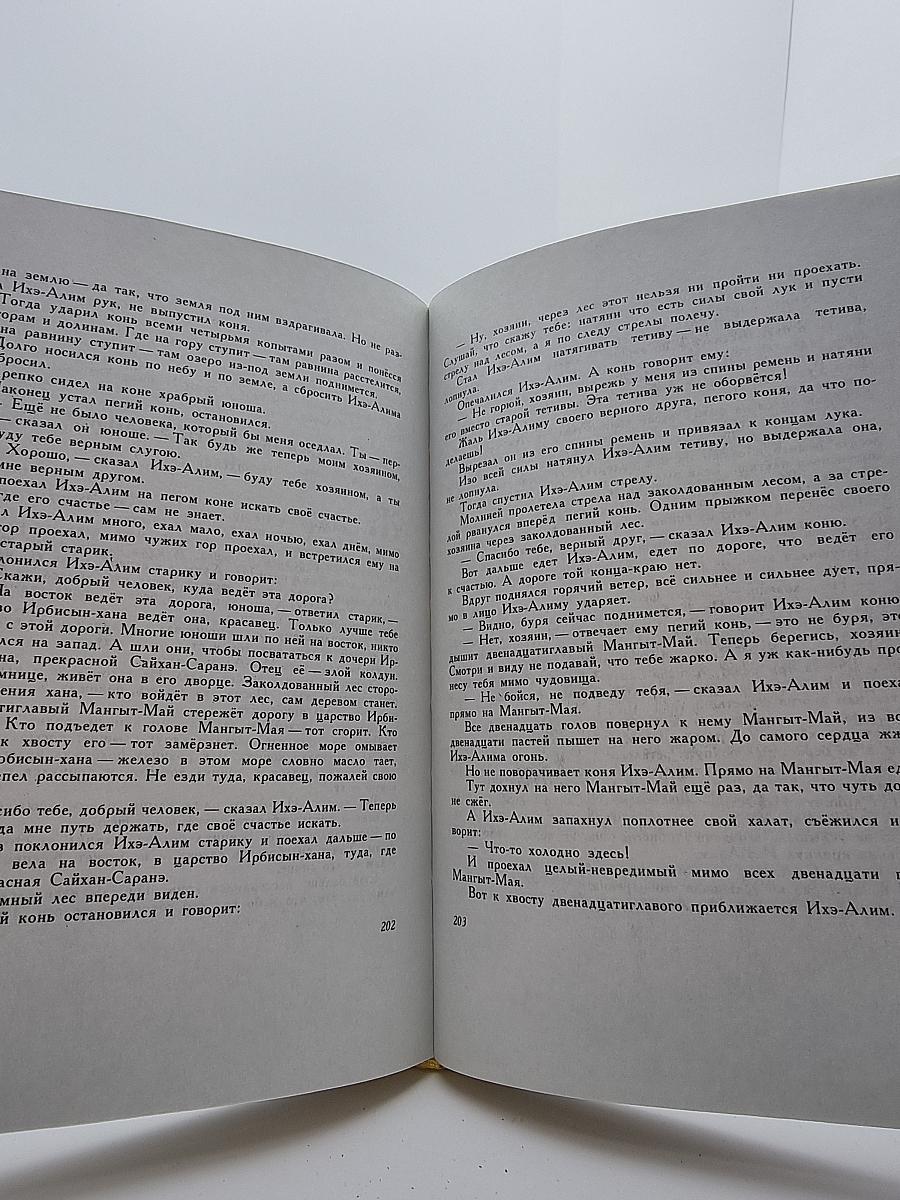 на землю — да так, что земля под ним вздрагивала. Но не раз-
Ихэ-Алим рук, не выпустил коня.
Тогда ударил конь всеми четырьмя копытами разом и понёсся
горам и долинам. Где на гору ступит — там равнина расстелется,
на равнину ступит — там озеро из-под земли поднимется.
Долго носился конь по небу и по земле, а сбросить Ихэ-Алима
сбросил.
репко сидел на коне храбрый юноша.
аконец устал пегий конь, остановился.
— Ещё не было человека, который бы меня оседлал. Ты — пер-
— сказал он юноше. — Так будь же теперь моим хозяином,
уду тебе верным слугою.
Хорошо, — сказал Ихэ-Алим, — буду тебе хозяином, а ты
мне верным другом.
поехал Ихэ-Алим на пегом коне искать своё счастье.
где его счастье — сам не знает.
л Ихэ-Алим много, ехал мало, ехал ночью, ехал днём, мимо
гор проехал, мимо чужих гор проехал, и встретился ему на
старый старик.
лонился Ихэ-Алим старику и говорит:
Скажи, добрый человек, куда ведёт эта дорога?
На восток ведёт эта дорога, юноша, — ответил старик, —
во Ирбисын-хана ведёт она, красавец. Только лучше тебе
с этой дороги. Многие юноши шли по ней на восток, никто
лся на запад. А шли они, чтобы посвататься к дочери Ир-
на, прекрасной Сайхан-Саранэ. Отец её — злой колдун.
мнице, живёт она в его дворце. Заколдованный лес сторо-
ения хана, — кто войдёт в этот лес, сам деревом станет.
тиглавый Мангыт-Май стережёт дорогу в царство Ирби-
Кто подъедет к голове Мангыт-Мая — тот сгорит. Кто
к хвосту его — тот замёрзнет. Огненное море омывает
рбисын-хана — железо в этом море словно масло тает,
епел рассыпаются. Не езди туда, красавец, пожалей свою
сибо тебе, добрый человек, — сказал Ихэ-Алим. — Теперь
да мне путь держать, где своё счастье искать.
з поклонился Ихэ-Алим старику и поехал дальше — по
вела на восток, в царство Ирбисын-хана, туда, где
расная Сайхан-Саранэ.
мный лес впереди виден.
й конь остановился и говорит:
202
— Ну, хозяин, через лес этот нельзя ни пройти ни проехать.
Слушай, что скажу тебе: натяни что есть силы свой лук и пусти
стрелу над лесом, а я по следу стрелы полечу.
Стал Ихэ-Алим натягивать тетиву — не выдержала тетива,
лопнула.
Опечалился Ихэ-Алим. А конь говорит ему:
— Не горюй, хозяин, вырежь у меня из спины ремень и натяни
его вместо старой тетивы. Эта тетива уж не оборвётся!
Жаль Ихэ-Алиму своего верного друга, пегого коня, да что по-
делаешь!
Вырезал он из его спины ремень и привязал к концам лука.
Изо всей силы натянул Ихэ-Алим тетиву, но выдержала она,
не лопнула.
Тогда спустил Ихэ-Алим стрелу.
Молнией пролетела стрела над заколдованным лесом, а за стре-
лой рванулся вперёд пегий конь. Одним прыжком перенёс своего
хозяина через заколдованный лес.
— Спасибо тебе, верный друг, — сказал Ихэ-Алим коню.
Вот дальше едет Ихэ-Алим, едет по дороге, что ведёт его
к счастью. А дороге той конца-краю нет.
Вдруг поднялся горячий ветер, всё сильнее и сильнее дует, пря-
мо в лицо Ихэ-Алиму ударяет.
— Видно, буря сейчас поднимется, — говорит Ихэ-Алим коню
— Нет, хозяин, — отвечает ему пегий конь, — это не буря, это
дышит двенадцатиглавый Мангыт-Май. Теперь берегись, хозяин
Смотри и виду не подавай, что тебе жарко. А я уж как-нибудь про
несу тебя мимо чудовища.
— Не бойся, не подведу тебя, — сказал Ихэ-Алим и поеха
прямо на Мангыт-Мая.
Все двенадцать голов повернул к нему Мангыт-Май, из вс
двенадцати пастей пышет на него жаром. До самого сердца жж
Ихэ-Алима огонь.
Но не поворачивает коня Ихэ-Алим. Прямо на Мангыт-Мая ед
Тут дохнул на него Мангыт-Май ещё раз, да так, что чуть до
не сжёг.
А Ихэ-Алим запахнул поплотнее свой халат, съёжился и
ворит:
— Что-то холодно здесь!
И проехал целый-невредимый мимо всех двенадцати г
Мангыт-Мая.
Вот к хвосту двенадцатиглавого приближается Ихэ-Алим.
203